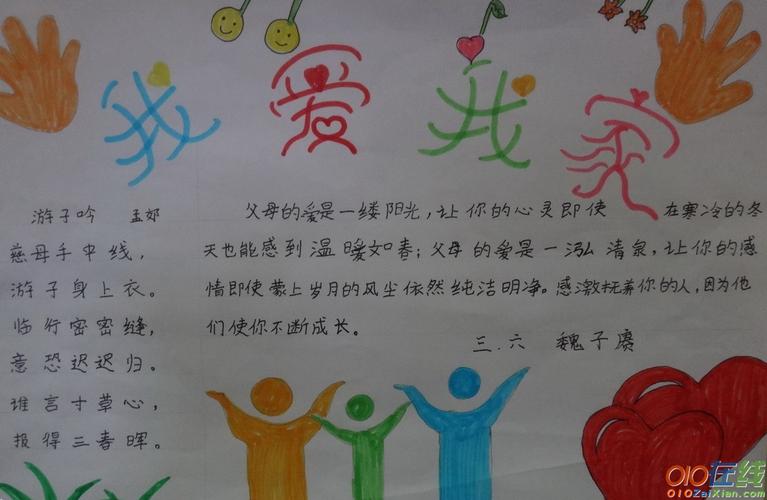 我爱我家
游子吟 孟郊
慈母手中线，
游子身上衣。
临行密密缝，
意恐迟迟归。
谁言寸草心，
报得三春晖。
父母的爱是一缕阳光，让你的心灵即使 在寒冷的冬
天也能感到温暖如春；父母的爱是一泓清泉，让你的感
情即使蒙上岁月的风尘依然纯洁明净。感激抚养你的人，因为他
们使你不断成长。
三.六 魏子赓
010在线
010ZaiXian.com